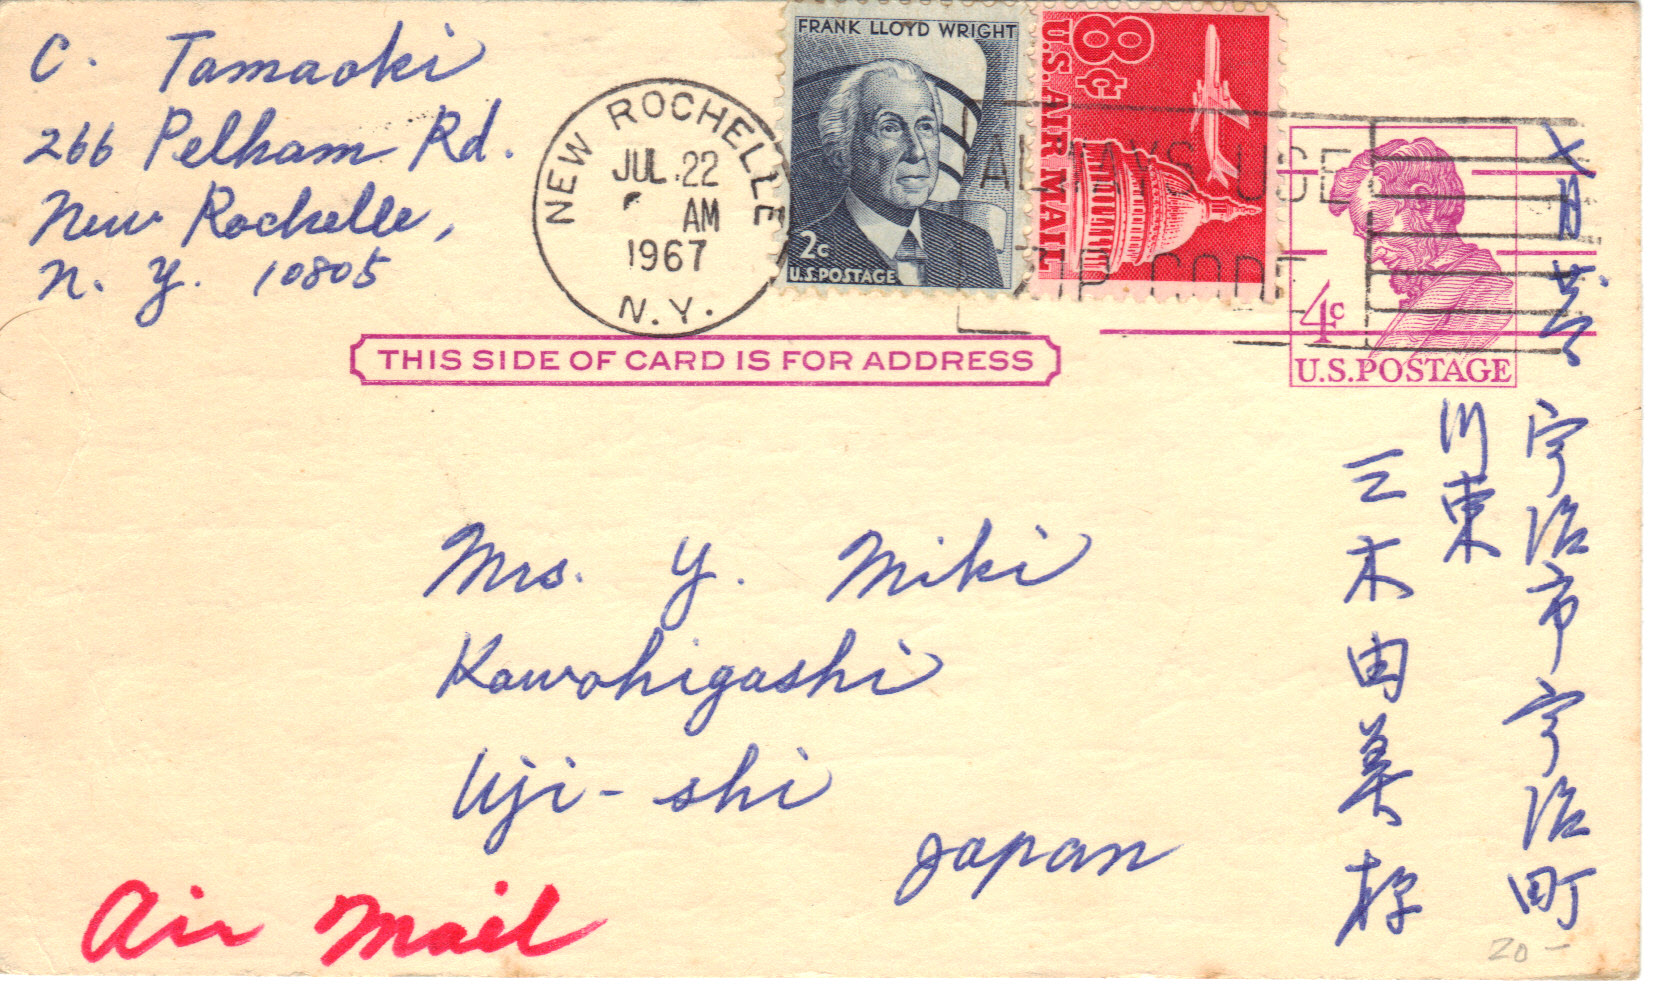 C. Tamaoki
266 Pelham Rd.
New Rochelle,
N. Y. 10805
NEW ROCHELLE
JUL 22
AM
1967
N.Y.
FRANK LLOYD WRIGHT
2c
U.S. POSTAGE
8¢
U.S. AIR MAIL
ALWAYS USE
ZIP CODE
4c
U.S. POSTAGE
THIS SIDE OF CARD IS FOR ADDRESS
Mrs. Y. Miki
Kawahigashi
Uji-shi
Japan
Air Mail
宇治市宇治町
川東
三木由美様
20-